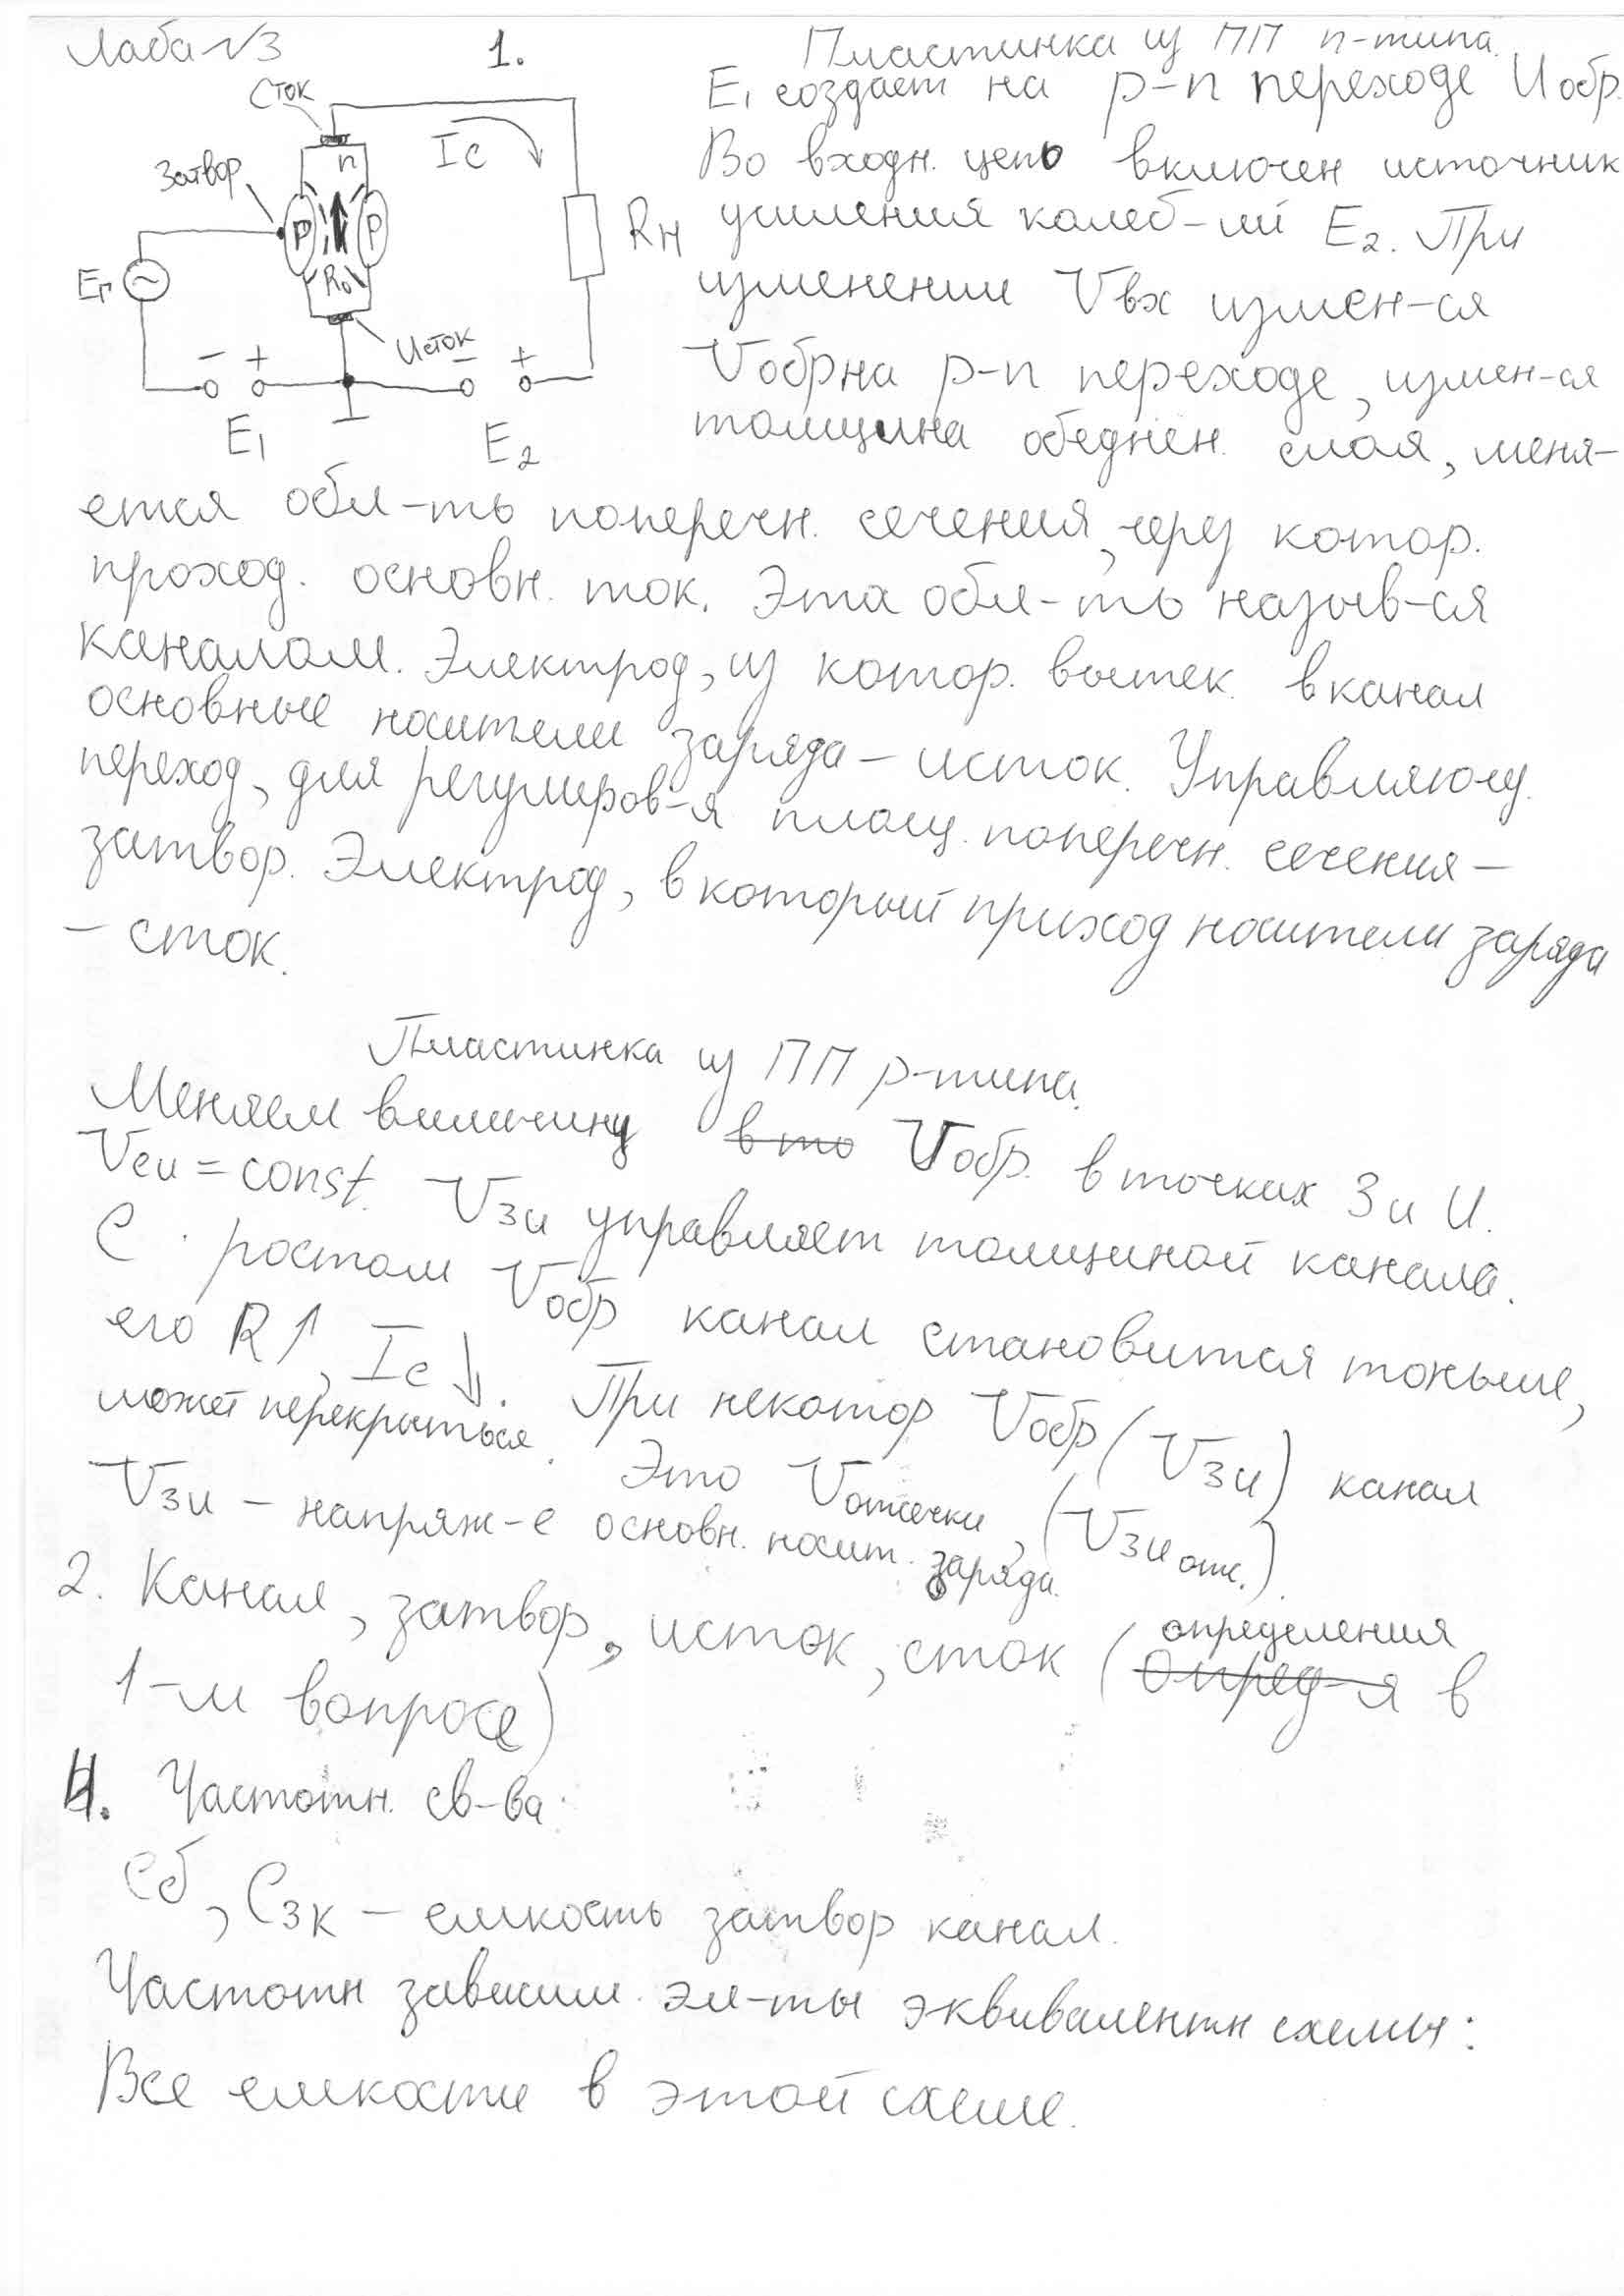 Лаба №3
1.
Пластинка из ПП n-типа.
E1 создает на p-n переходе Uобр.
Во входн. цепь включен источник
усиления колеб-ий E2. При
изменении Uвх измен-ся
Uобр на p-n переходе, измен-ся
толщина обеднен. слоя, меня-
ется обл-ть поперечн. сечения, через котор.
проход. основн. ток. Эта обл-ть назыв-ся
каналом. Электрод, из котор. вытек. в канал
основные носители заряда – исток. Управляющ.
переход, для регулиров-я площ. поперечн. сечения –
затвор. Электрод, в который приход носители заряда
– сток.
Сток
Затвор
Исток
n
p
p
R0
Iс
Rн
Eг
– +
– +
E1
E2
Пластинка из ПП p-типа.
Меняем величину в то Uобр. в точках З и И.
Uси = const. Uзи управляет толщиной канала.
С ростом Uобр канал становится тоньше,
его R↑, Iс↓. При некотор Uобр (Uзи) канал
может перекрыться. Это Uотсечки, (Uзи отс.).
Uзи – напряж-е основн. носит. заряда.
2. Канал, затвор, исток, сток (опред-я определения в
1-м вопросе)
4. Частотн. св-ва:
Сб, Сзк – емкость затвор канал.
Частотн зависим. эл-ты эквивалентн схемы:
Все емкости в этой схеме.